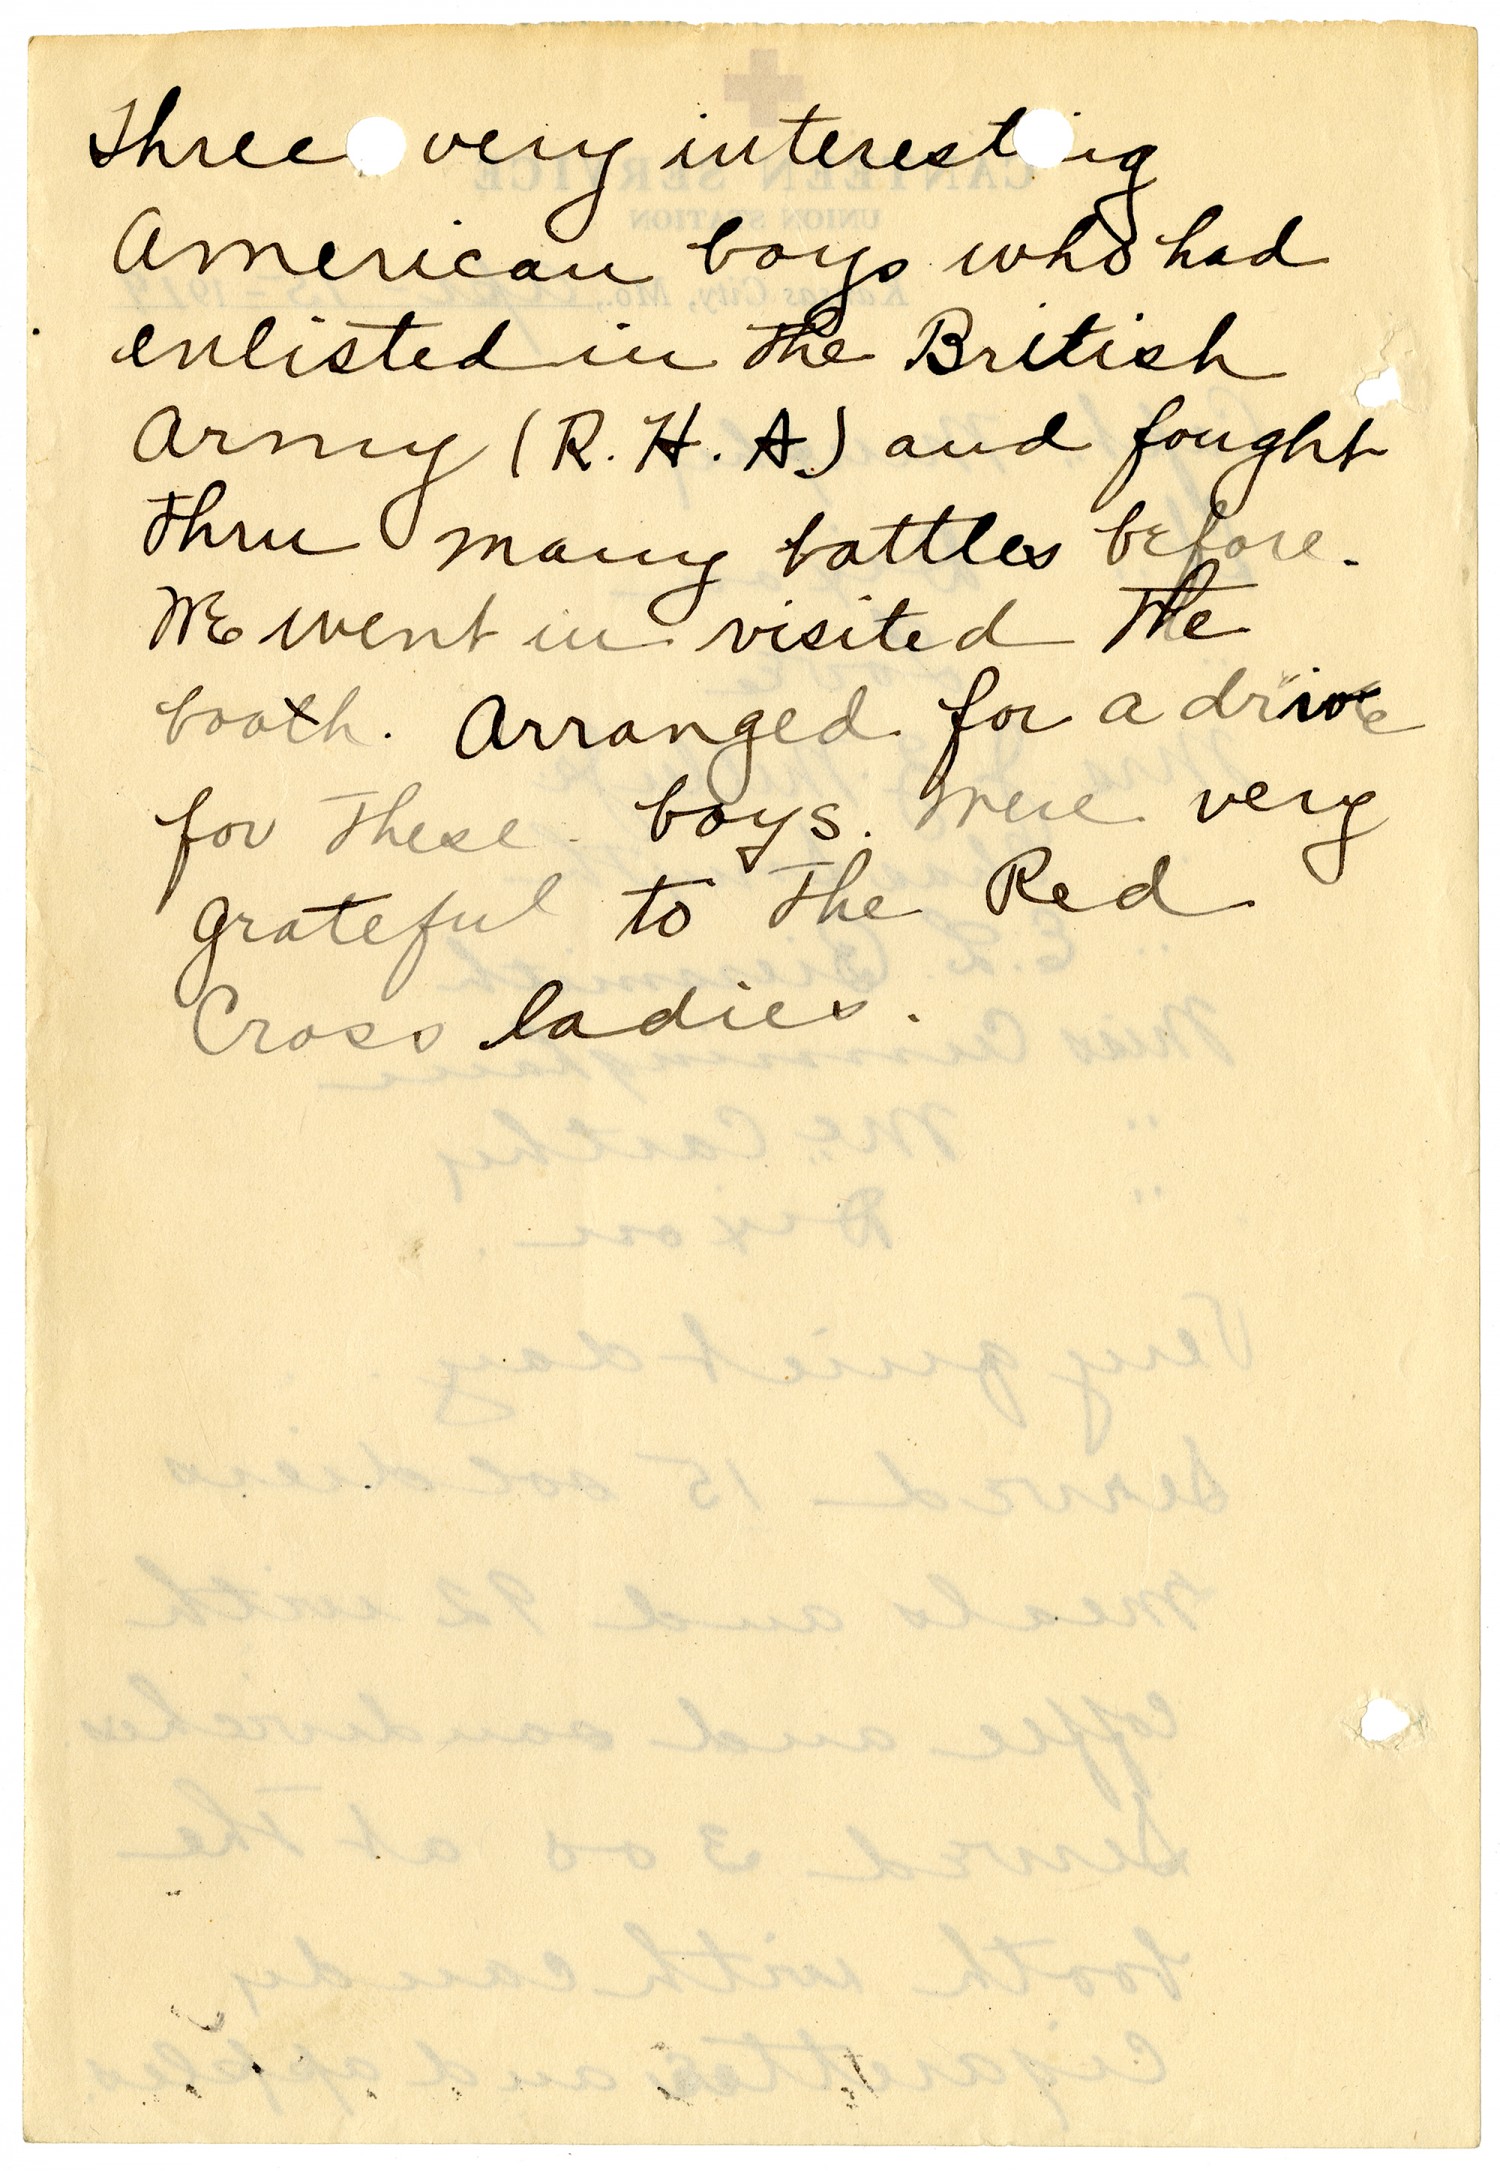 Three very interesting
American boys who had
enlisted in the British
Army (R.H.A.) and fought
thru many battles before.
We went in visited the
booth. Arranged for a drive
for these boys. Were very
grateful to the Red
Cross ladies.